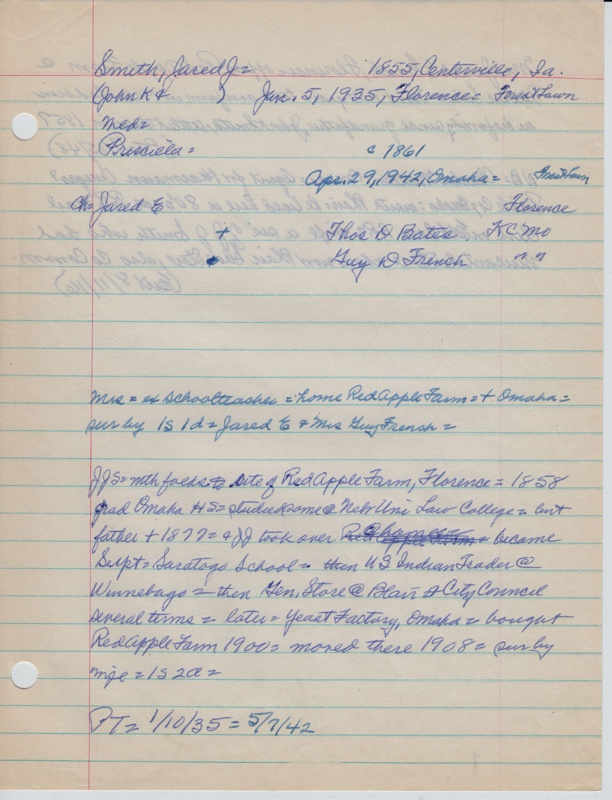 Smith, Jared J = 1855, Centerville, Ia.
(John K & } Jan. 5, 1935, Florence = Forest Lawn
med =
Priscilla = c 1861
Apr. 29, 1942, Omaha = Forest Lawn
Ch = Jared E Florence
+ Thos D Bates KC Mo
Guy D French " "
Mrs = ex schoolteacher = home Red Apple Farm = + Omaha =
sur by 1s 1d = Jared E & Mrs Guy French =
JJS = with folks to site of Red Apple Farm, Florence = 1858
grad Omaha HS = studied some @ Nebr Uni Law College = but
father + 1877 = & JJ took over home = became
Supt = Saratoga School = then US Indian Trader @
Winnebago = then Gen. Store @ Blair & City Council
several terms = later = Yeast Factory, Omaha = bought
Red Apple Farm 1900 = moved there 1908 = sur by
wife = 1s 2d =
PT = 1/10/35 = 5/7/42